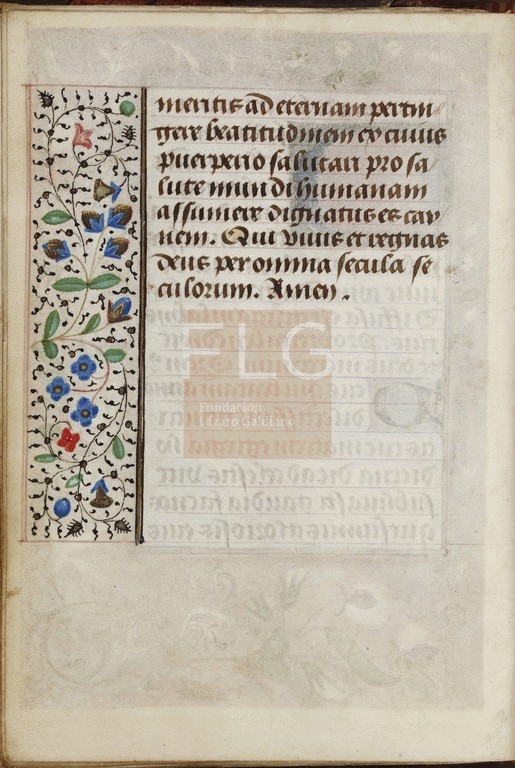 meritis ad eternam pertin
gere beatitudinem ex cuius
puerperio salutari pro sa
lute mundi humanam
assumere dignatus es car
nem. Qui vivis et regnas
deus per omnia secula se
culorum. Amen.
FLG
Fundación
Lázaro Galdiano